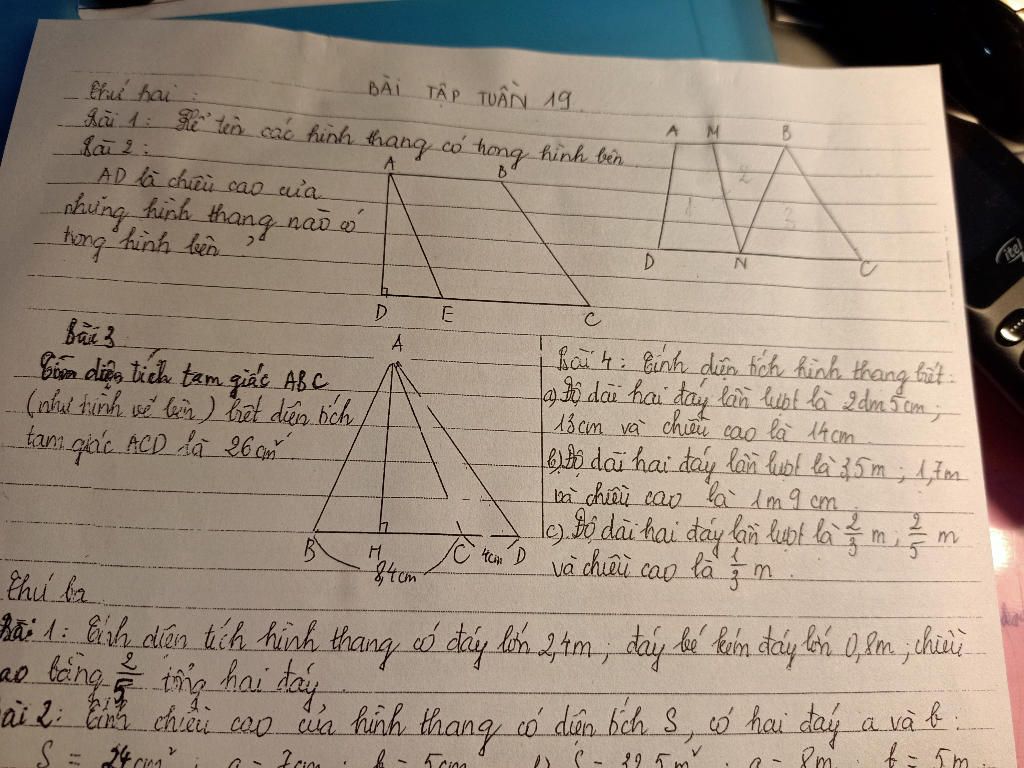 BÀI TẬP TUẦN 19
Thứ hai :
Bài 1 : Kể tên các hình thang có trong hình bên
Bài 2 :
AD là chiều cao của
những hình thang nào có
trong hình bên ?
A B
D E C
A M B
1 2 3
D N C
Bài 3
Tính diện tích tam giác ABC
(như hình vẽ bên) biết diện tích
tam giác ACD là 26cm²
A
B H C 4cm D
8,4cm
Bài 4 : Tính diện tích hình thang biết :
a) Độ dài hai đáy lần lượt là 2dm 5cm ;
13cm và chiều cao là 14cm
b) Độ dài hai đáy lần lượt là 3,5m ; 1,7m
và chiều cao là 1m 9cm
c) Độ dài hai đáy lần lượt là 2/3 m ; 2/5 m
và chiều cao là 1/3 m .
Thứ ba
Bài 1 : Tính diện tích hình thang có đáy lớn 2,4m ; đáy bé kém đáy lớn 0,8m ; chiều
cao bằng 2/5 tổng hai đáy .
Bài 2 : Tính chiều cao của hình thang có diện tích S, có hai đáy a và b :
S = 24cm² ; a = 7cm ; b = 5cm b) S = 32,5m² ; a = 8m ; b = 5m
itel